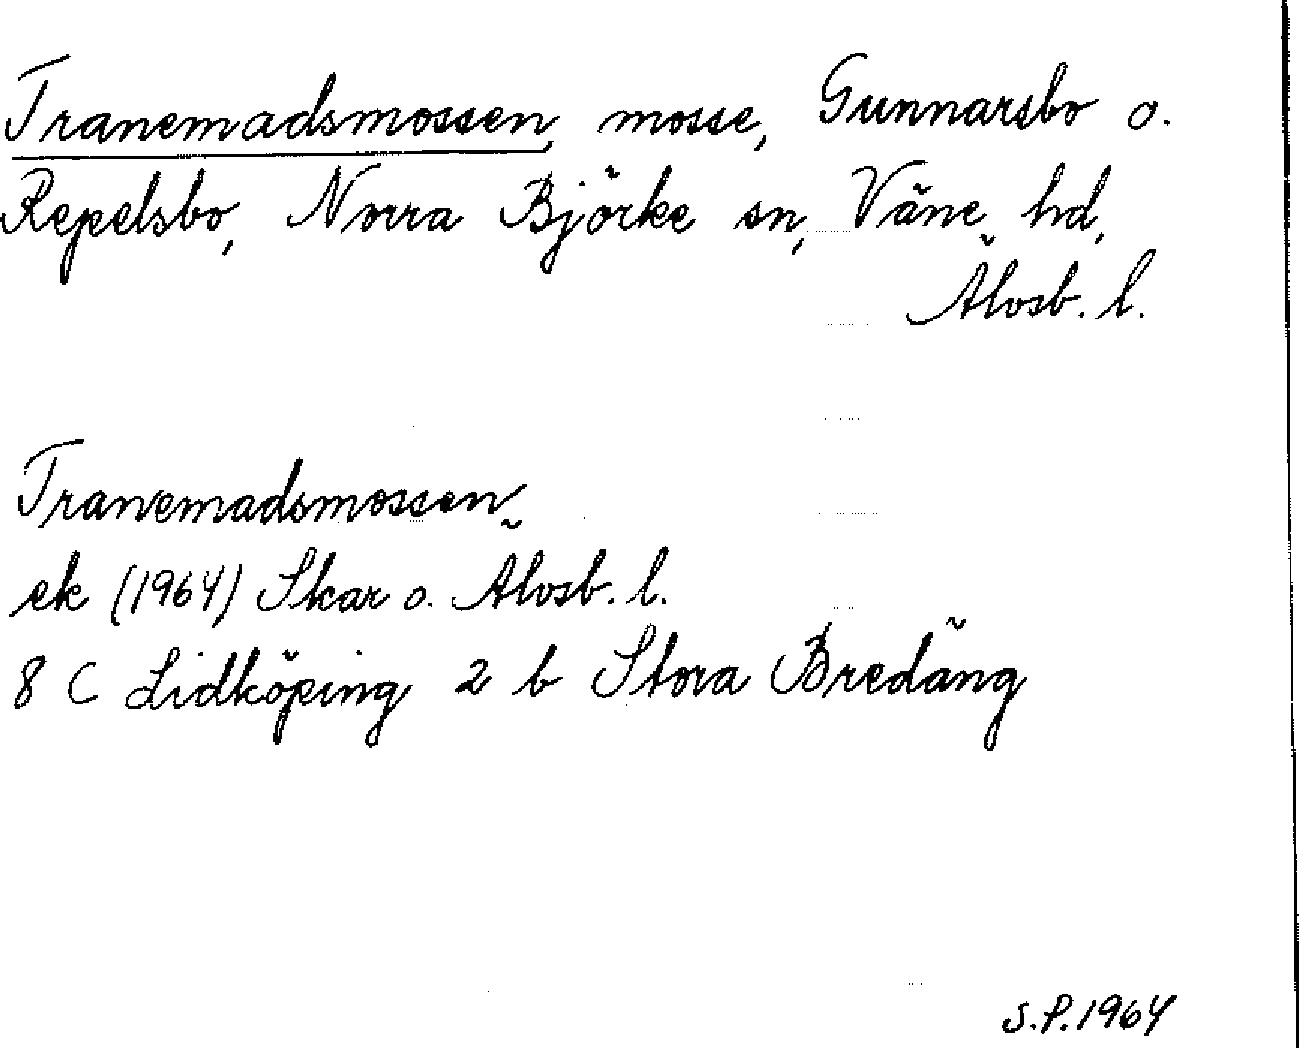 Tranemadsmossen, mosse, Gunnarsbo o.
Repelsbo, Norra Björke sn, Väne hd,
Älvsb. l.
Tranemadsmossen
ek (1964) Skar o. Älvsb. l.
8 C Lidköping 2 b Stora Bredäng
S.P. 1964